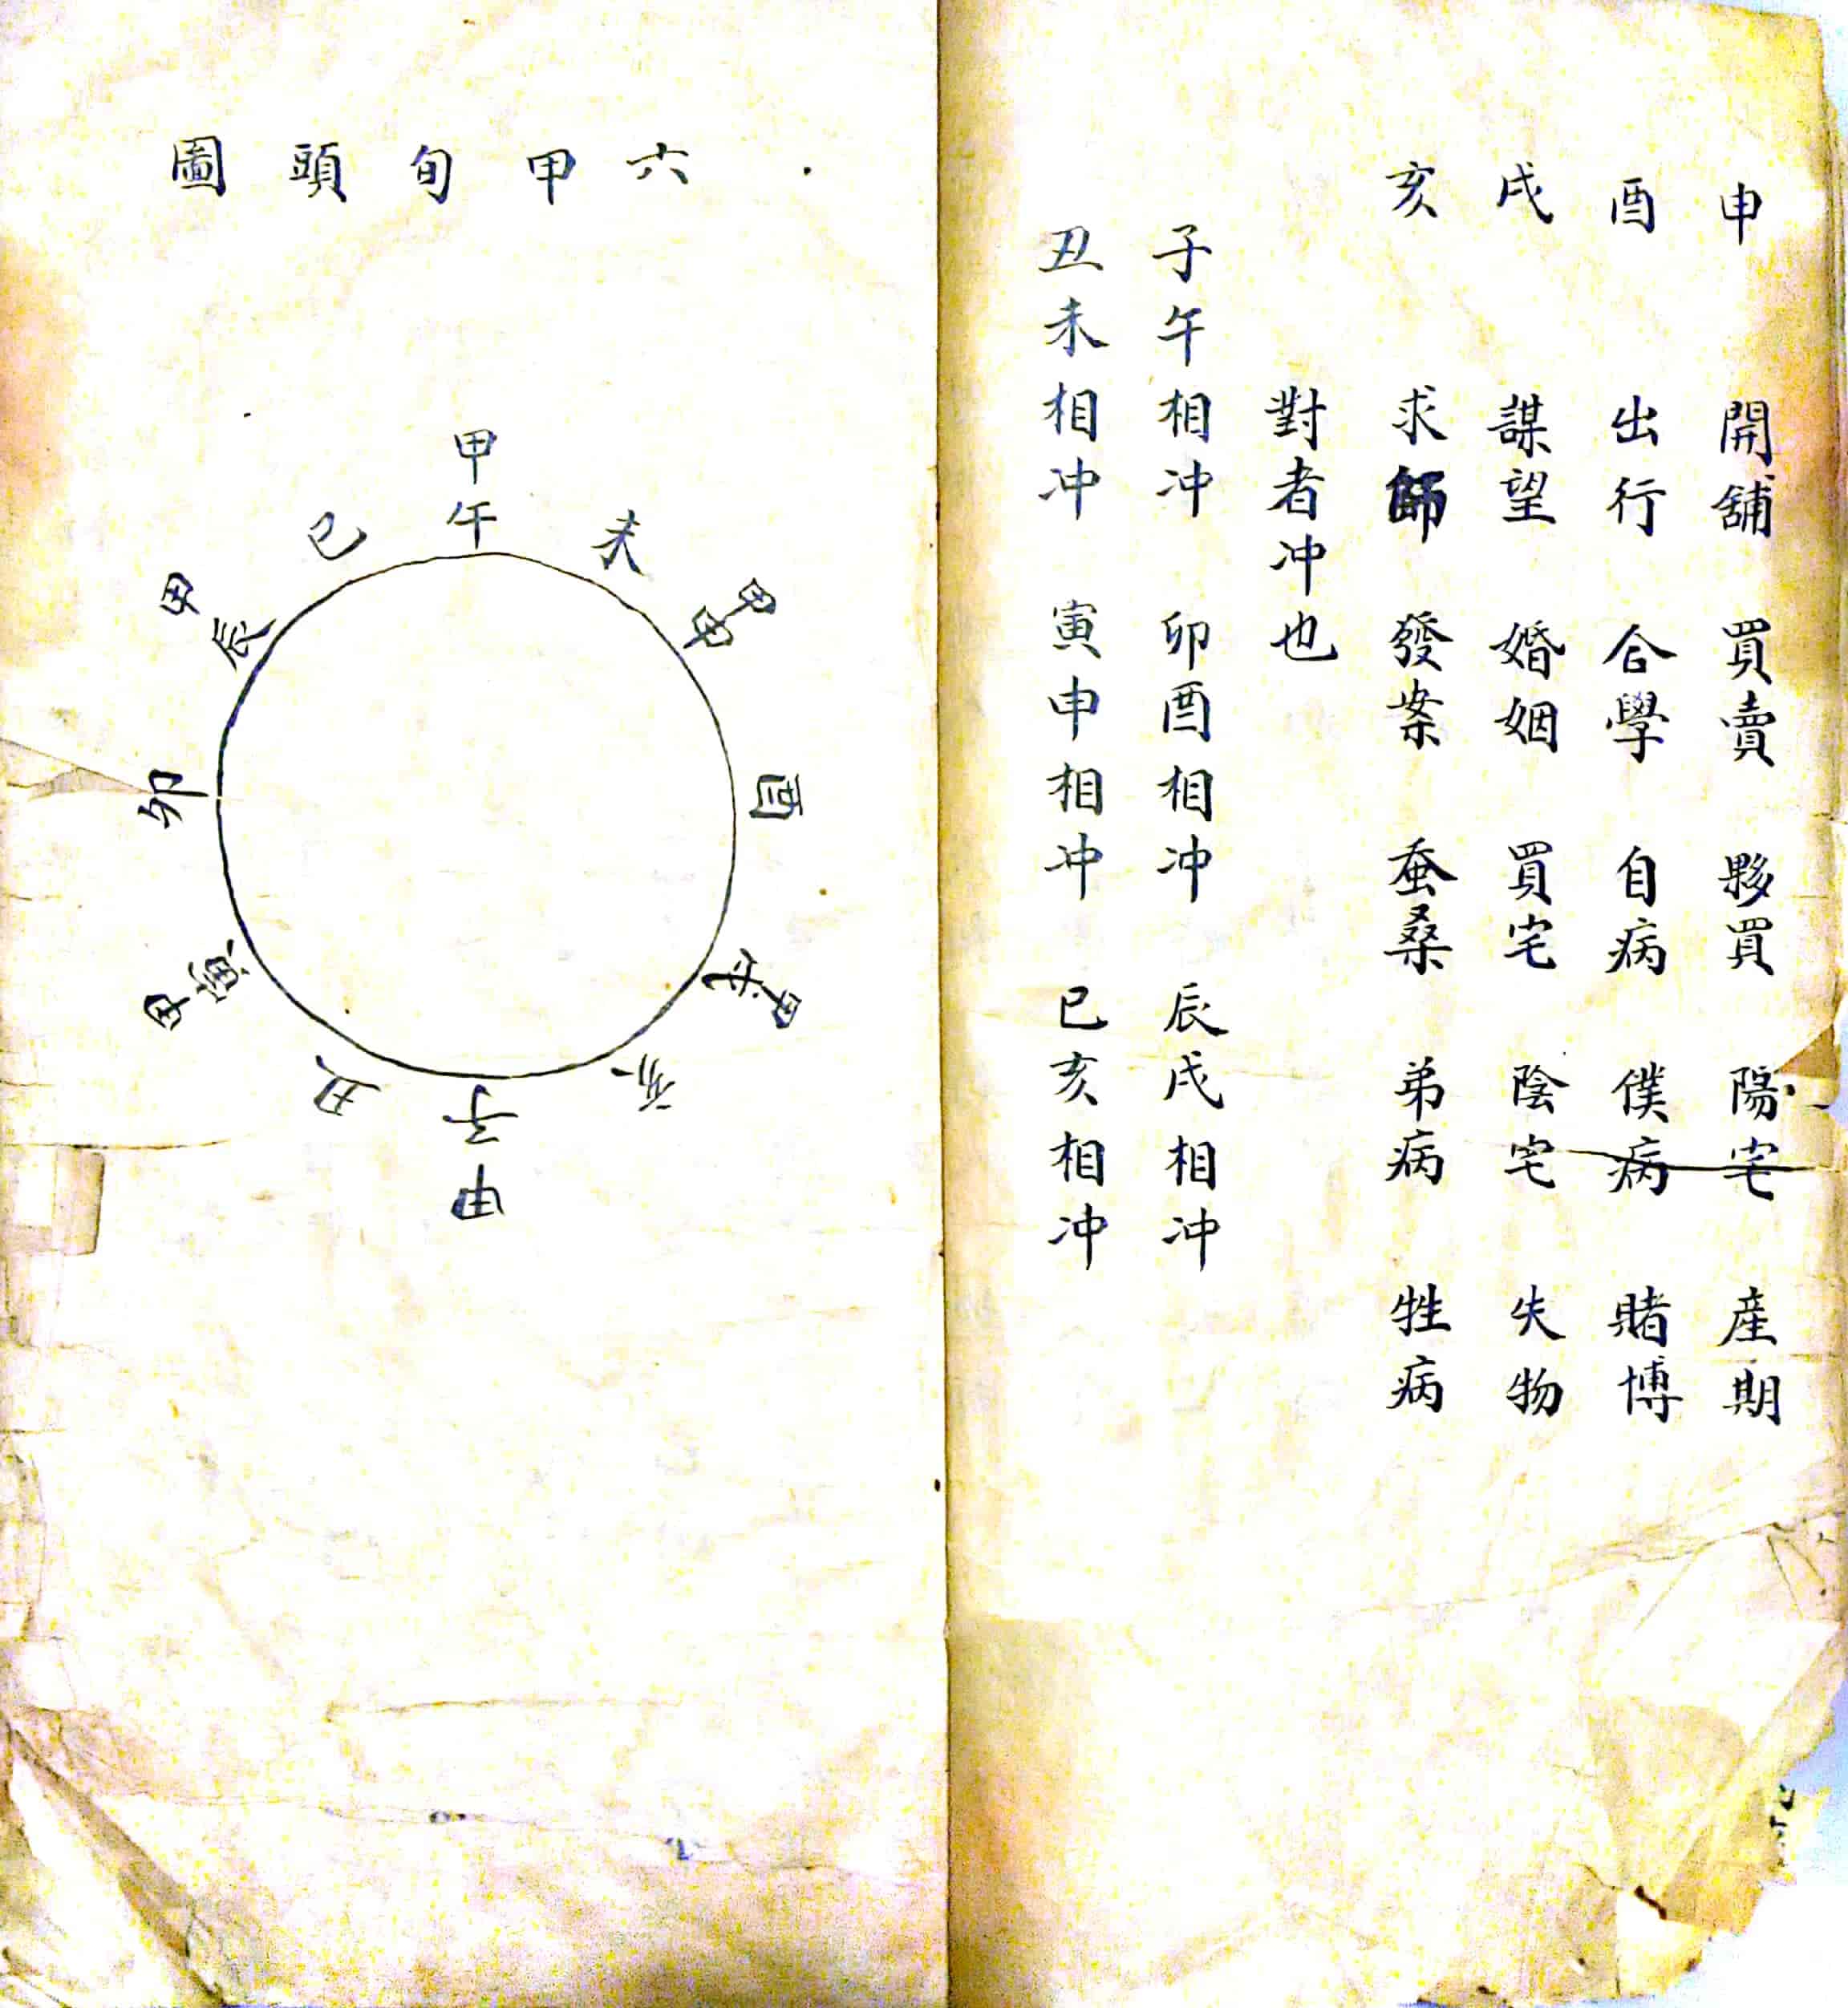 申　開舖　買賣　夥買　陽宅　產期
酉　出行　合學　自病　僕病　賭博
戌　謀望　婚姻　買宅　陰宅　失物
亥　求師　發案　蚕桑　弟病　牲病
對者冲也
子午相冲　卯酉相冲　辰戌相冲
丑未相冲　寅申相冲　巳亥相冲
六甲旬頭圖
甲午
未
甲申
酉
甲戌
亥
甲子
丑
甲寅
卯
甲辰
巳